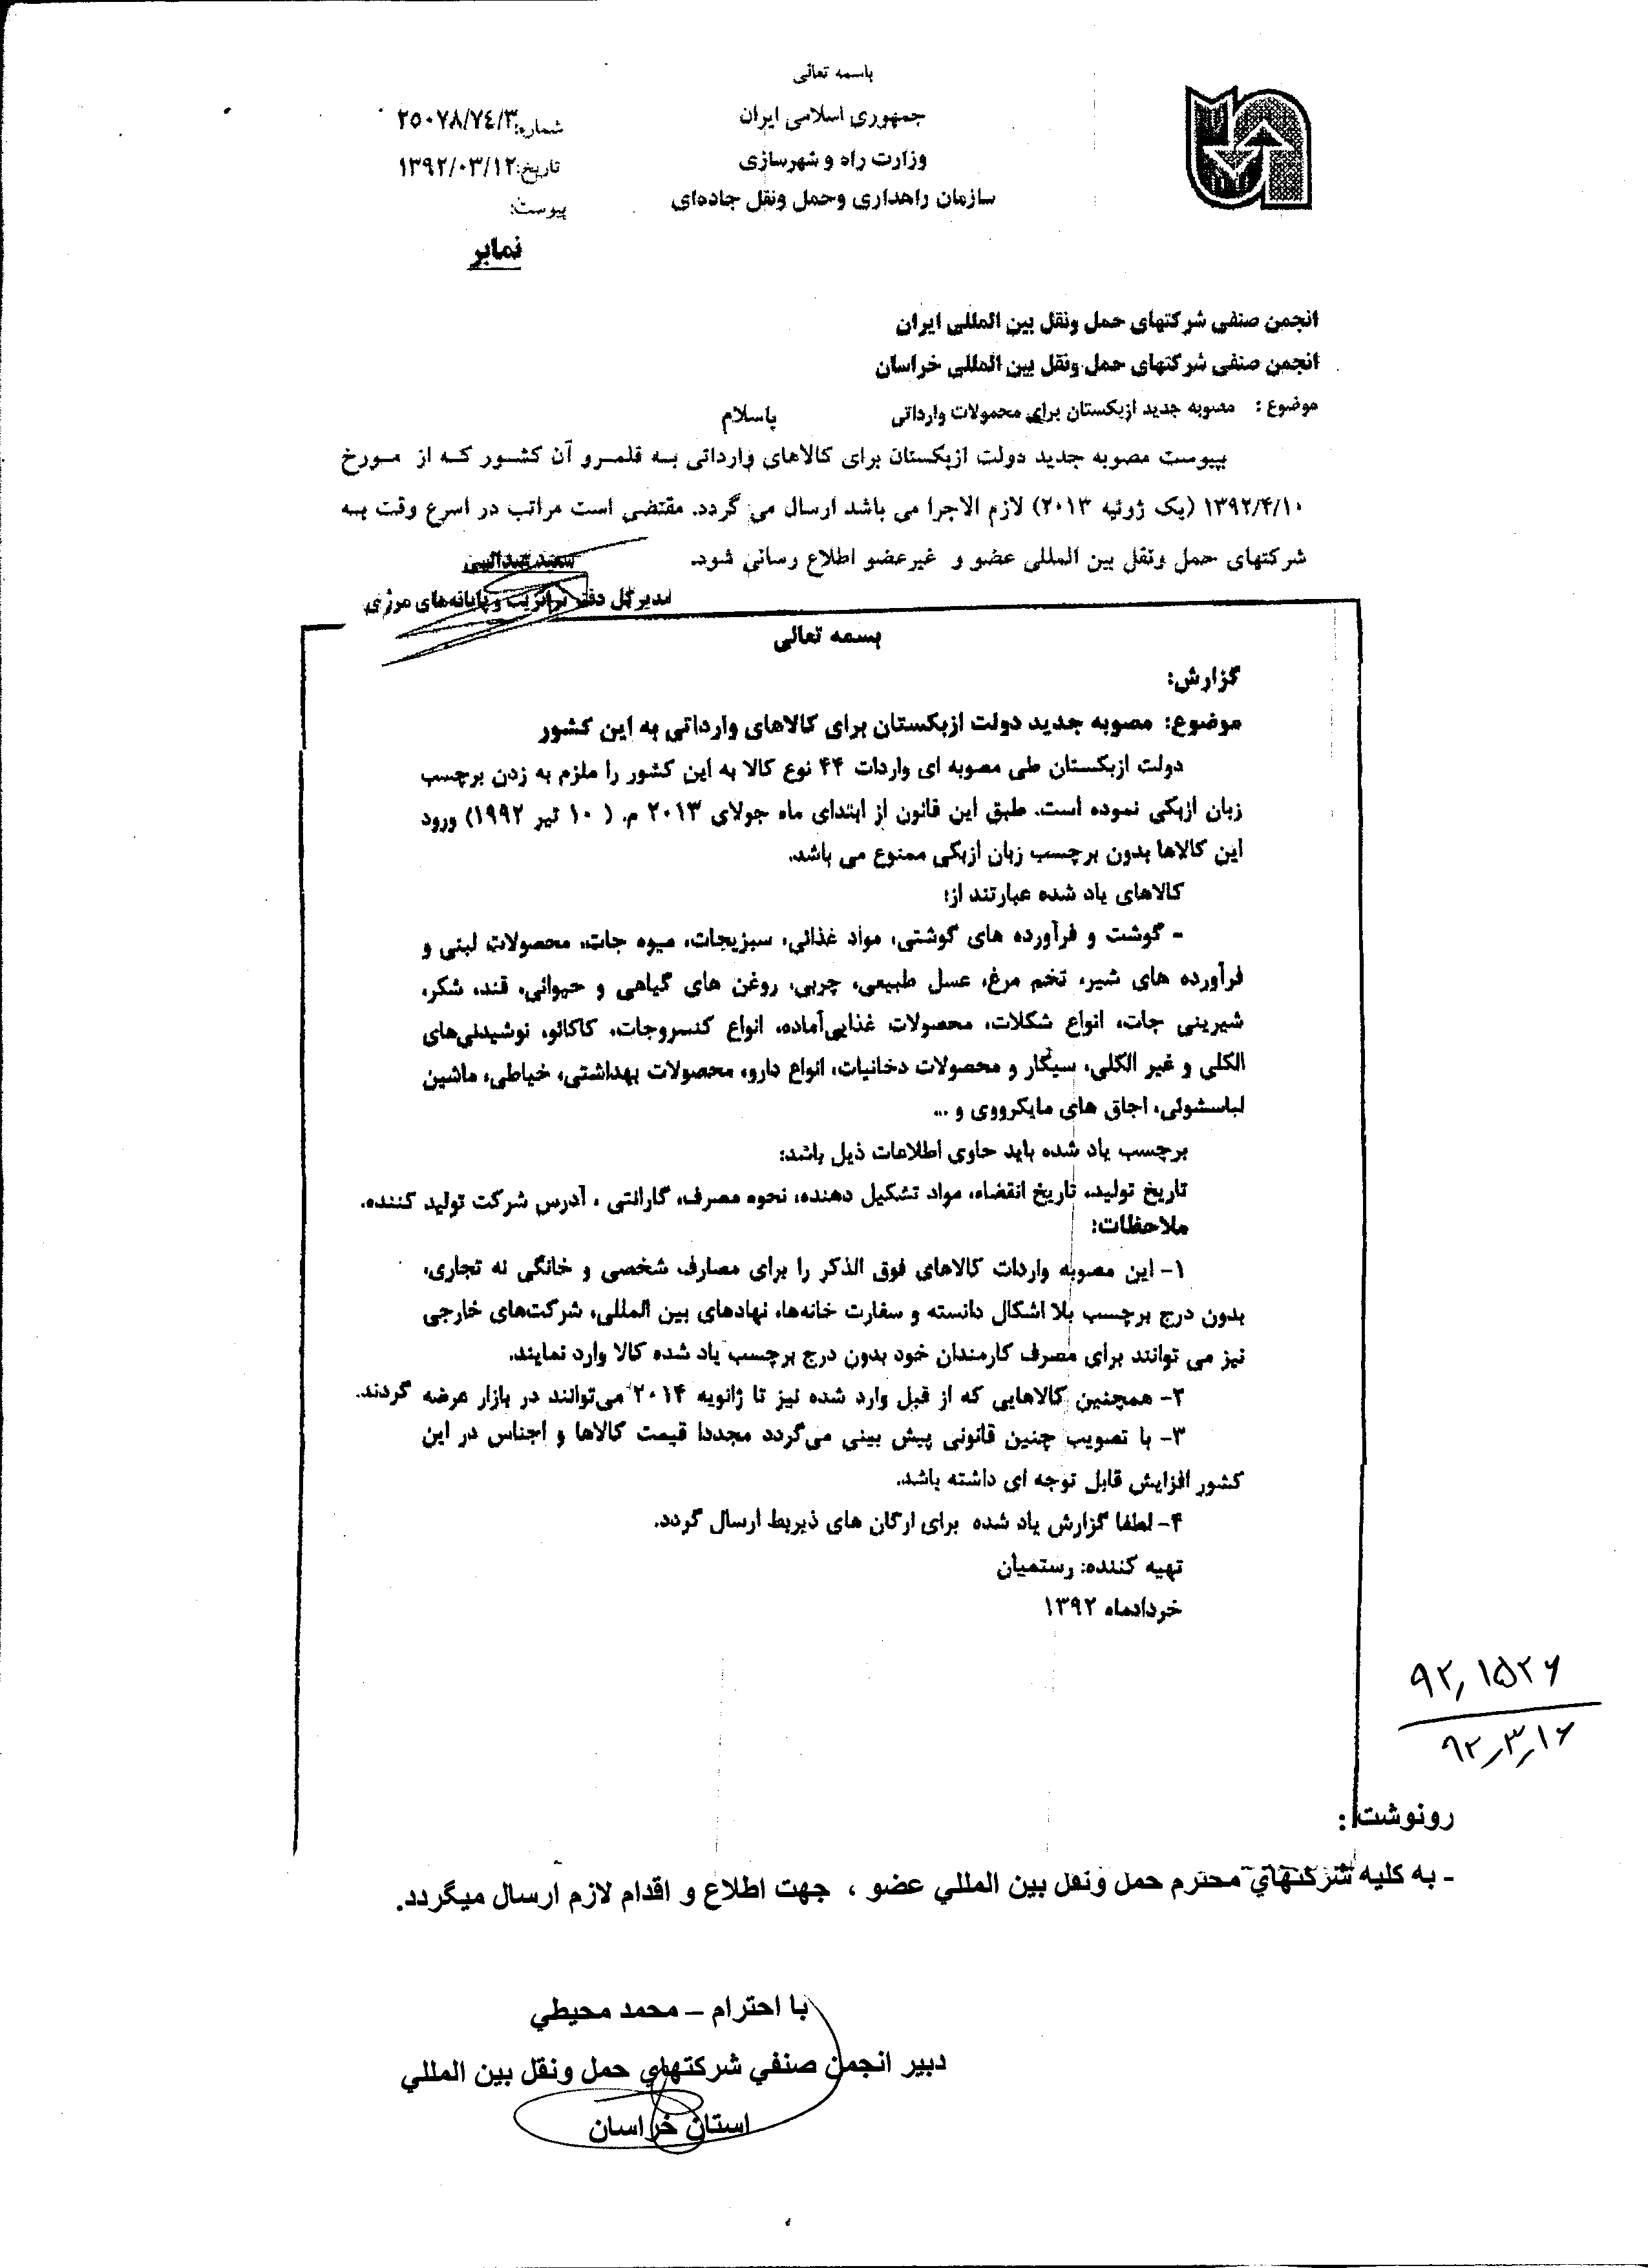 باسمه تعالی
جمهوری اسلامی ایران
وزارت راه و شهرسازی
سازمان راهداری وحمل ونقل جاده‌ای
شماره: ۲۵۰۷۸/۷٤/۳
تاریخ: ۱۳۹۲/۰۳/۱۲
پیوست:
نمابر
انجمن صنفی شرکتهای حمل ونقل بین المللی ایران
انجمن صنفی شرکتهای حمل ونقل بین المللی خراسان
موضوع : مصوبه جدید ازبکستان برای محمولات وارداتی
باسلام
بپیوست مصوبه جدید دولت ازبکستان برای کالاهای وارداتی به قلمرو آن کشور که از مورخ
۱۳۹۲/۴/۱۰ (یک ژوئیه ۲۰۱۳) لازم الاجرا می باشد ارسال می گردد. مقتضی است مراتب در اسرع وقت به
شرکتهای حمل ونقل بین المللی عضو و غیرعضو اطلاع رسانی شود.
سعید عبدالهی
مدیرکل دفتر ترانزیت و پایانه‌های مرزی
بسمه تعالی
گزارش:
موضوع: مصوبه جدید دولت ازبکستان برای کالاهای وارداتی به این کشور
دولت ازبکستان طی مصوبه ای واردات ۴۴ نوع کالا به این کشور را ملزم به زدن برچسب
زبان ازبکی نموده است. طبق این قانون از ابتدای ماه جولای ۲۰۱۳ م. ( ۱۰ تیر ۱۹۹۲) ورود
این کالاها بدون برچسب زبان ازبکی ممنوع می باشد.
کالاهای یاد شده عبارتند از:
- گوشت و فرآورده های گوشتی، مواد غذائی، سبزیجات، میوه جات، محصولات لبنی و
فرآورده های شیر، تخم مرغ، عسل طبیعی، چربی، روغن های گیاهی و حیوانی، قند، شکر،
شیرینی جات، انواع شکلات، محصولات غذایی‌آماده، انواع کنسروجات، کاکائو، نوشیدنی‌های
الکلی و غیر الکلی، سیگار و محصولات دخانیات، انواع دارو، محصولات بهداشتی، خیاطی، ماشین
لباسشوئی، اجاق های مایکرووی و ...
برچسب یاد شده باید حاوی اطلاعات ذیل باشد:
تاریخ تولید، تاریخ انقضاء، مواد تشکیل دهنده، نحوه مصرف، گارانتی ، آدرس شرکت تولید کننده.
ملاحظات:
۱- این مصوبه واردات کالاهای فوق الذکر را برای مصارف شخصی و خانگی نه تجاری،
بدون درج برچسب بلا اشکال دانسته و سفارت خانه‌ها، نهادهای بین المللی، شرکت‌های خارجی
نیز می توانند برای مصرف کارمندان خود بدون درج برچسب یاد شده کالا وارد نمایند.
۲- همچنین کالاهایی که از قبل وارد شده نیز تا ژانویه ۲۰۱۴ می‌توانند در بازار عرضه گردند.
۳- با تصویب چنین قانونی پیش بینی می‌گردد مجددا قیمت کالاها و اجناس در این
کشور افزایش قابل توجه ای داشته باشد.
۴- لطفا گزارش یاد شده برای ارگان های ذیربط ارسال گردد.
تهیه کننده: رستمیان
خردادماه ۱۳۹۲
۹۲٫۱۵۲۶
۹۲٫۳٫۱۶
رونوشت :
- به کلیه شرکتهاي محترم حمل ونقل بین المللي عضو ، جهت اطلاع و اقدام لازم ارسال میگردد.
با احترام – محمد محیطي
دبیر انجمن صنفي شرکتهاي حمل ونقل بین المللي
استان خراسان